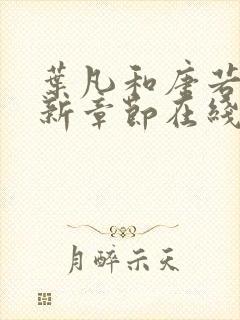 葉凡和唐若
新章節在綫
月醉示天